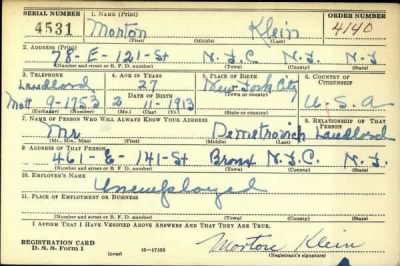 SERIAL NUMBER 1. NAME (Print) ORDER NUMBER
4531 Morton Klein 4140
(First) (Middle) (Last)
2. ADDRESS (Print)
78-E-121-St N.Y.C N.Y.
(Number and street or R. F. D. number) (Town) (County) (State)
3. TELEPHONE 4. AGE IN YEARS 5. PLACE OF BIRTH 6. COUNTRY OF CITIZENSHIP
Landlord 27 New York City
DATE OF BIRTH (Town or county)
9-1753 2 11-1913 U.S.A
(Exchange) (Number) (Mo.) (Day) (Yr.) (State or country)
7. NAME OF PERSON WHO WILL ALWAYS KNOW YOUR ADDRESS 8. RELATIONSHIP OF THAT PERSON
Mr Landlord
(Mr., Mrs., Miss) (First) (Middle) (Last)
9. ADDRESS OF THAT PERSON
461-E-141-St Bronx N.Y.C. N.Y.
(Number and street or R. F. D. number) (Town) (County) (State)
10. EMPLOYER'S NAME
Unemployed
11. PLACE OF EMPLOYMENT OR BUSINESS
(Number and street or R. F. D. number) (Town) (County) (State)
I AFFIRM THAT I HAVE VERIFIED ABOVE ANSWERS AND THAT THEY ARE TRUE.
REGISTRATION CARD
D. S. S. FORM 1 (over) Morton Klein
(Registrant's signature)